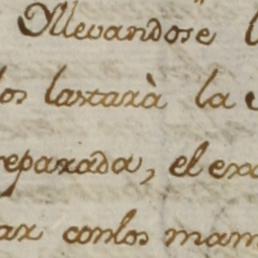 Yllevandose
los lastarà la
reparada, el
ax conlos